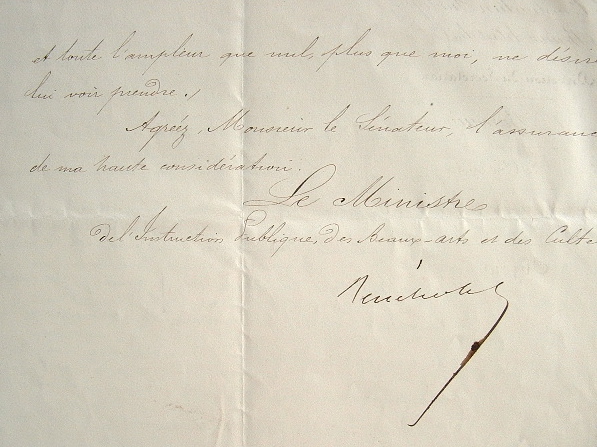 et toute l'ampleur que nul, plus que moi, ne désire
lui voir prendre.
Agréez, Monsieur le Sénateur, l'assuranc
de ma haute considération.
Le Ministre
de l'Instruction Publique, des Beaux-arts et des Culte